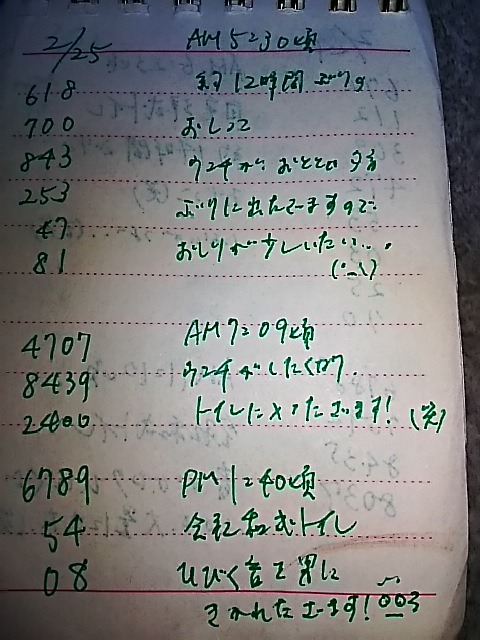 2/25 AM5:30頃
618 約12時間ぶりの
700 おしっこ
843 ウンチが おとといの夕方
253 ぶりに出たてますので
47 おしりが少しいたい...
81
4707 AM7:09頃
8439 ウンチがしたくなり
2400 トイレに たさいます!(笑)
6789 PM1:40頃
54 会社 和式トイレ
08 ひびく音を 男に
きかれたさいます! 003